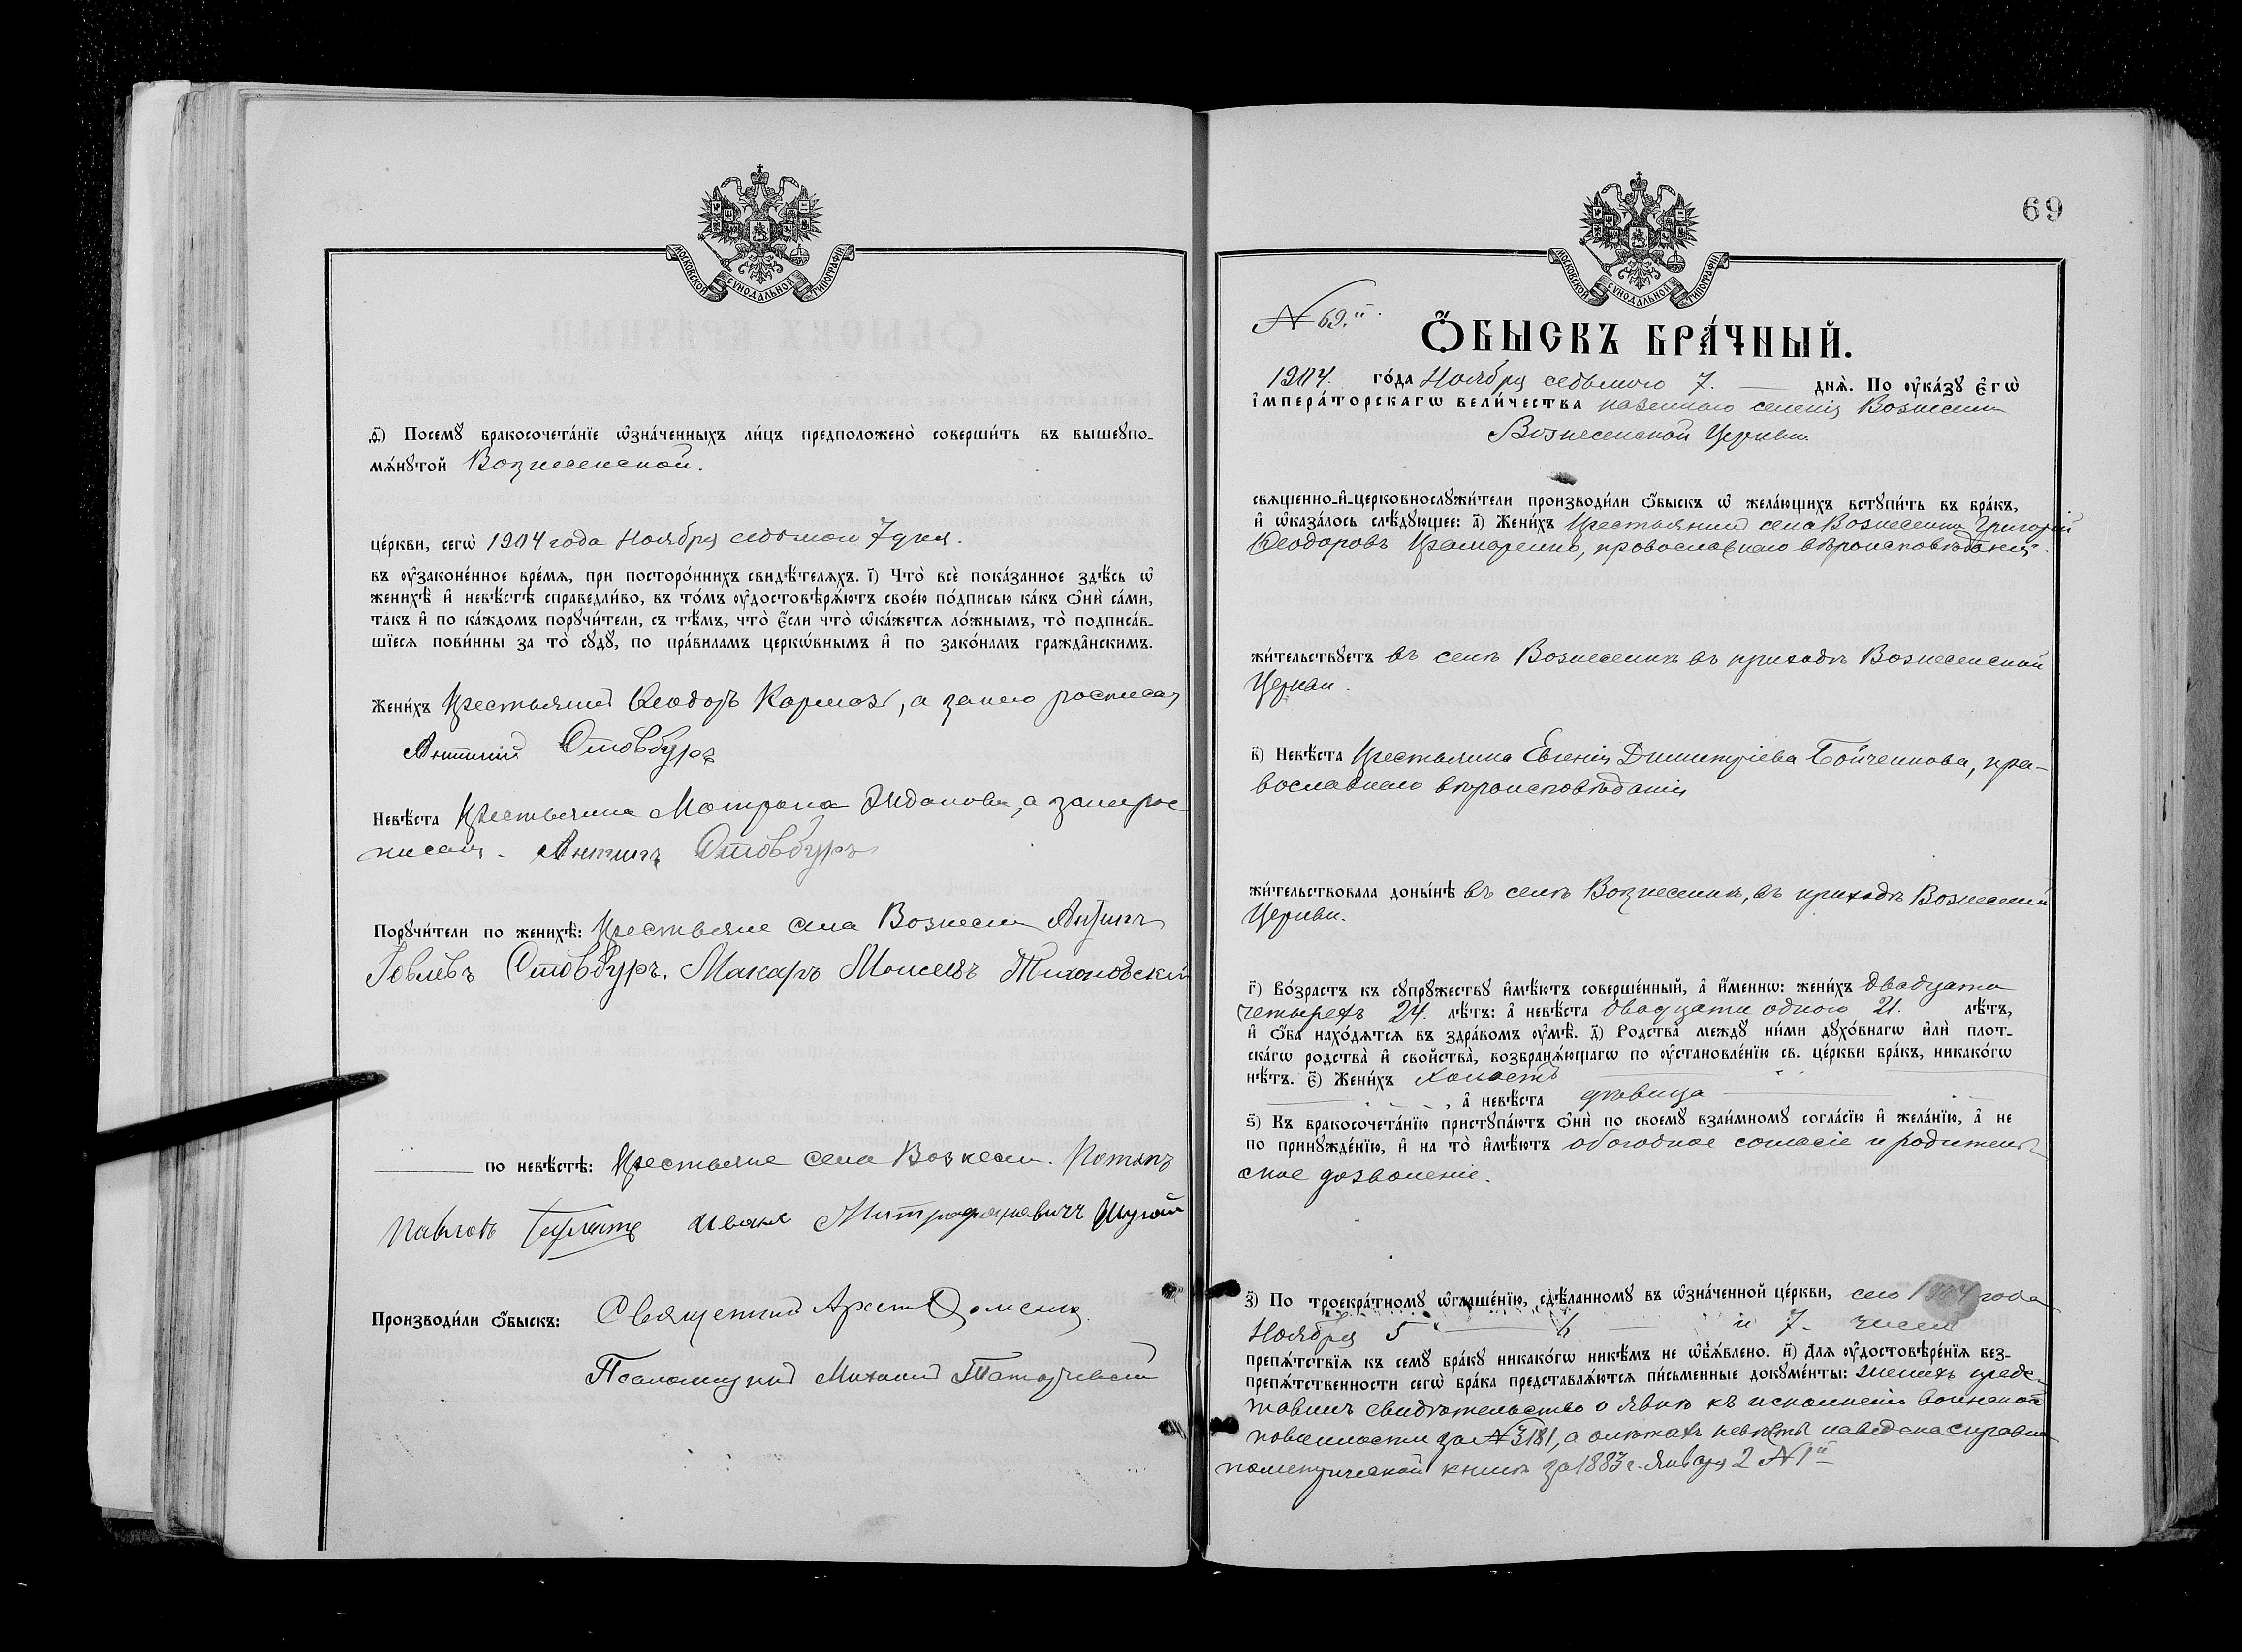 МОСКОВСКОЙ СУНОДАЛЬНОЙ ТИПОГРАФІИ
ѳ҃) Посемꙋ бракосочета́нїе ѡ҆зна́ченныхъ ли́цъ предположено̀ соверши́ть въ вышеꙋпо-
мѧ́нꙋтой Вознесенской.
це́ркви, сегѡ̀ 1904 года Ноября седьмой 7 дня.
въ ᲂу҆законе́нное вре́мѧ, при посторо́ннихъ свидѣ́телѧхъ. і҃) Что̀ всѐ пока́занное здѣ́сь ѡ҆
женихѣ̀ и҆ невѣ́стѣ справедли́во, въ то́мъ ᲂу҆достовѣрѧ́ютъ свое́ю по́дписью ка́къ ѻ҆нѝ са́ми,
та́къ и҆ по ка́ждомъ порꙋчи́тели, съ тѣ́мъ, что̀ є҆́сли что̀ ѡ҆ка́жетсѧ ло́жнымъ, то̀ подписа́в-
шїесѧ пови́нны за то̀ сꙋдꙋ̀, по пра́виламъ церкѡ́внымъ и҆ по зако́намъ гражда́нскимъ.
Жени́хъ Крестьянин Ѳеодоръ Кормоз, а за него росписал
Антипій Стовбуръ
Невѣ́ста Крестьянка Мотрона Жданова, а за нея рос
писал. Антипъ Стовбуръ
Порꙋчи́тели по женихѣ̀: Крестьяне села Вознесен Антипъ
Іовлевъ Стовбуръ. Макаръ Моисеев Тихоновскій
по невѣ́стѣ: Крестьяне села Вознесен. Потапъ
Павловъ Иванъ Митрофановичъ Шугай
Производи́ли ѻ҆́быскъ: Священник
Псаломщикъ Михаил
69
МОСКОВСКОЙ СУНОДАЛЬНОЙ ТИПОГРАФІИ
№ 69.й
Ѻ҆́БЫСКЪ БРА́ЧНЫЙ.
1904. го́да Ноября седьмого 7. днѧ̀. По ᲂу҆ка́зꙋ є҆гѡ̀
і҆мпера́торскагѡ вели́чества казеннаго селенія Вознесенки
Вознесенской Церкви
свѧщенно-и҆-церковнослꙋжи́тели производи́ли ѻ҆́быскъ ѡ҆ жела́ющихъ встꙋпи́ть въ бра́къ,
и҆ ѡ҆каза́лось слѣ́дꙋющее: а҃) Жени́хъ Крестьянин села Вознесенки Григорій
Ѳеодоровъ Крамаренко, провославнаго вѣроисповѣданія.
жи́тельствꙋетъ въ селѣ Вознесенкѣ въ приходѣ Вознесенской
Церкви.
в҃) Невѣ́ста Крестьянка Евгенія Димитріева Бойченкова, пра-
вославнаго вѣроисповѣданія
жи́тельствовала доны́нѣ въ селѣ Вознесенкѣ, въ приходѣ Вознесенской
Церкви.
г҃) Во́зрастъ къ сꙋпрꙋ́жествꙋ и҆мѣ́ютъ соверше́нный, а҆ и҆́меннѡ: жени́хъ двадцати
четырехъ 24. лѣ́тъ: а҆ невѣ́ста двадцати одного 21. лѣ́тъ,
и҆ ѻ҆́ба нахо́дѧтсѧ въ здра́вомъ ᲂу҆мѣ̀. д҃) Родства̀ междꙋ̀ ни́ми дꙋхо́внагѡ и҆лѝ плот-
ска́гѡ родства̀ и҆ свойства̀, возбранѧ́ющагѡ по ᲂу҆становле́нїю св. це́ркви бра́къ, никако́гѡ
нѣ́тъ. є҃) Жени́хъ холостъ
, а҆ невѣ́ста дѣвица
ѕ҃) Къ бракосочета́нїю пристꙋпа́ютъ ѻ҆нѝ по своемꙋ̀ взаи́мномꙋ согла́сїю и҆ жела́нїю, а҆ не
по принꙋжде́нїю, и҆ на то̀ и҆мѣ́ютъ обоюдное согласіе и родитель-
ское дозволеніе.
з҃) По троекра́тномꙋ ѡ҆глаше́нїю, сдѣ́ланномꙋ въ ѡ҆зна́ченной це́ркви, сего 1904 года
Ноября 5 6 и 7. чисел
препѧ́тствїѧ къ семꙋ̀ бра́кꙋ никако́гѡ никѣ́мъ не ѡ҆б̾ѧ́влено. и҃) Длѧ ᲂу҆достовѣре́нїѧ без-
препѧ́тственности сегѡ̀ бра́ка представлѧ́ютсѧ пи́сьменные докꙋме́нты: женихъ предс-
тавилъ свидѣтельство о явкѣ къ исполненію воинской
повинности за № 3181, а о лѣтахъ невѣсты наведена справка
по метрической книгѣ за 1883 г. Января 2 № 1й